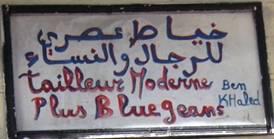 خياط عصري
للرجال والنساء
Tailleur Moderne
Plus Bluegeans
Ben
KHaled